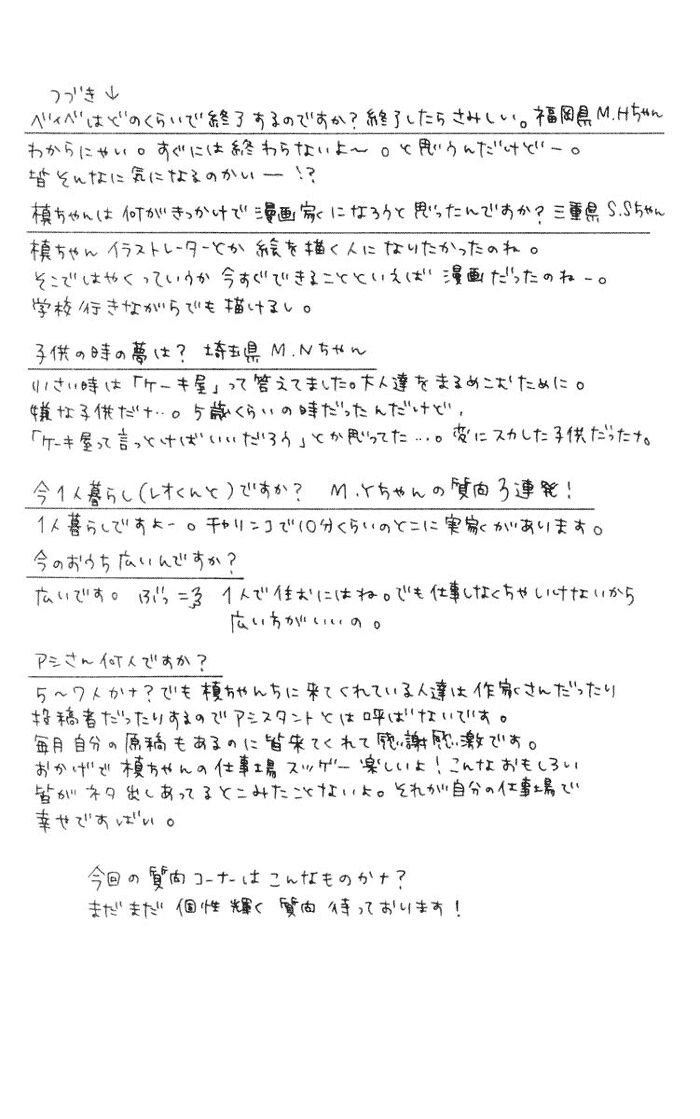 つづき↓
ベイベはどのくらいで終了するのですか?終了したらさみしい。福岡県M.Hちゃん
わからにゃい。すぐには終わらないよ〜。と思うんだけどー。
皆そんなに気になるのかいー!?
槙ちゃんは何がきっかけで漫画家になろうと思ったんですか?三重県S.Sちゃん
槙ちゃんイラストレーターとか絵を描く人になりたかったのね。
そこではやくっていうか今すぐできることといえば漫画だったのねー。
学校行きながらでも描けるし。
子供の時の夢は?埼玉県M.Nちゃん
小さい時は「ケーキ屋」って答えてました。大人達をまるめこむために。
嫌な子供だナ…。5歳くらいの時だったんだけど、
「ケーキ屋って言っとけばいいだろう」とか思ってた…。変にスカした子供だったナ。
今1人暮らし(レオくんと)ですか? M.Yちゃんの質問3連発!
1人暮らしですよー。チャリンコで10分くらいのとこに実家があります。
今のおうち広いんですか?
広いです。ぶっ 1人で住むにはね。でも仕事しなくちゃいけないから
広い方がいいの。
アシさん何人ですか?
5〜7人かナ?でも槙ちゃんちに来てくれている人達は作家さんだったり
投稿者だったりするのでアシスタントとは呼ばないです。
毎月自分の原稿もあるのに皆来てくれて感謝感激です。
おかげで槙ちゃんの仕事場スッゲー楽しいよ!こんなおもしろい
皆がネタ出しあってるとこみたことないよ。それが自分の仕事場で
幸せですばい。
今回の質問コーナーはこんなものかナ?
まだまだ個性輝く質問待っております!